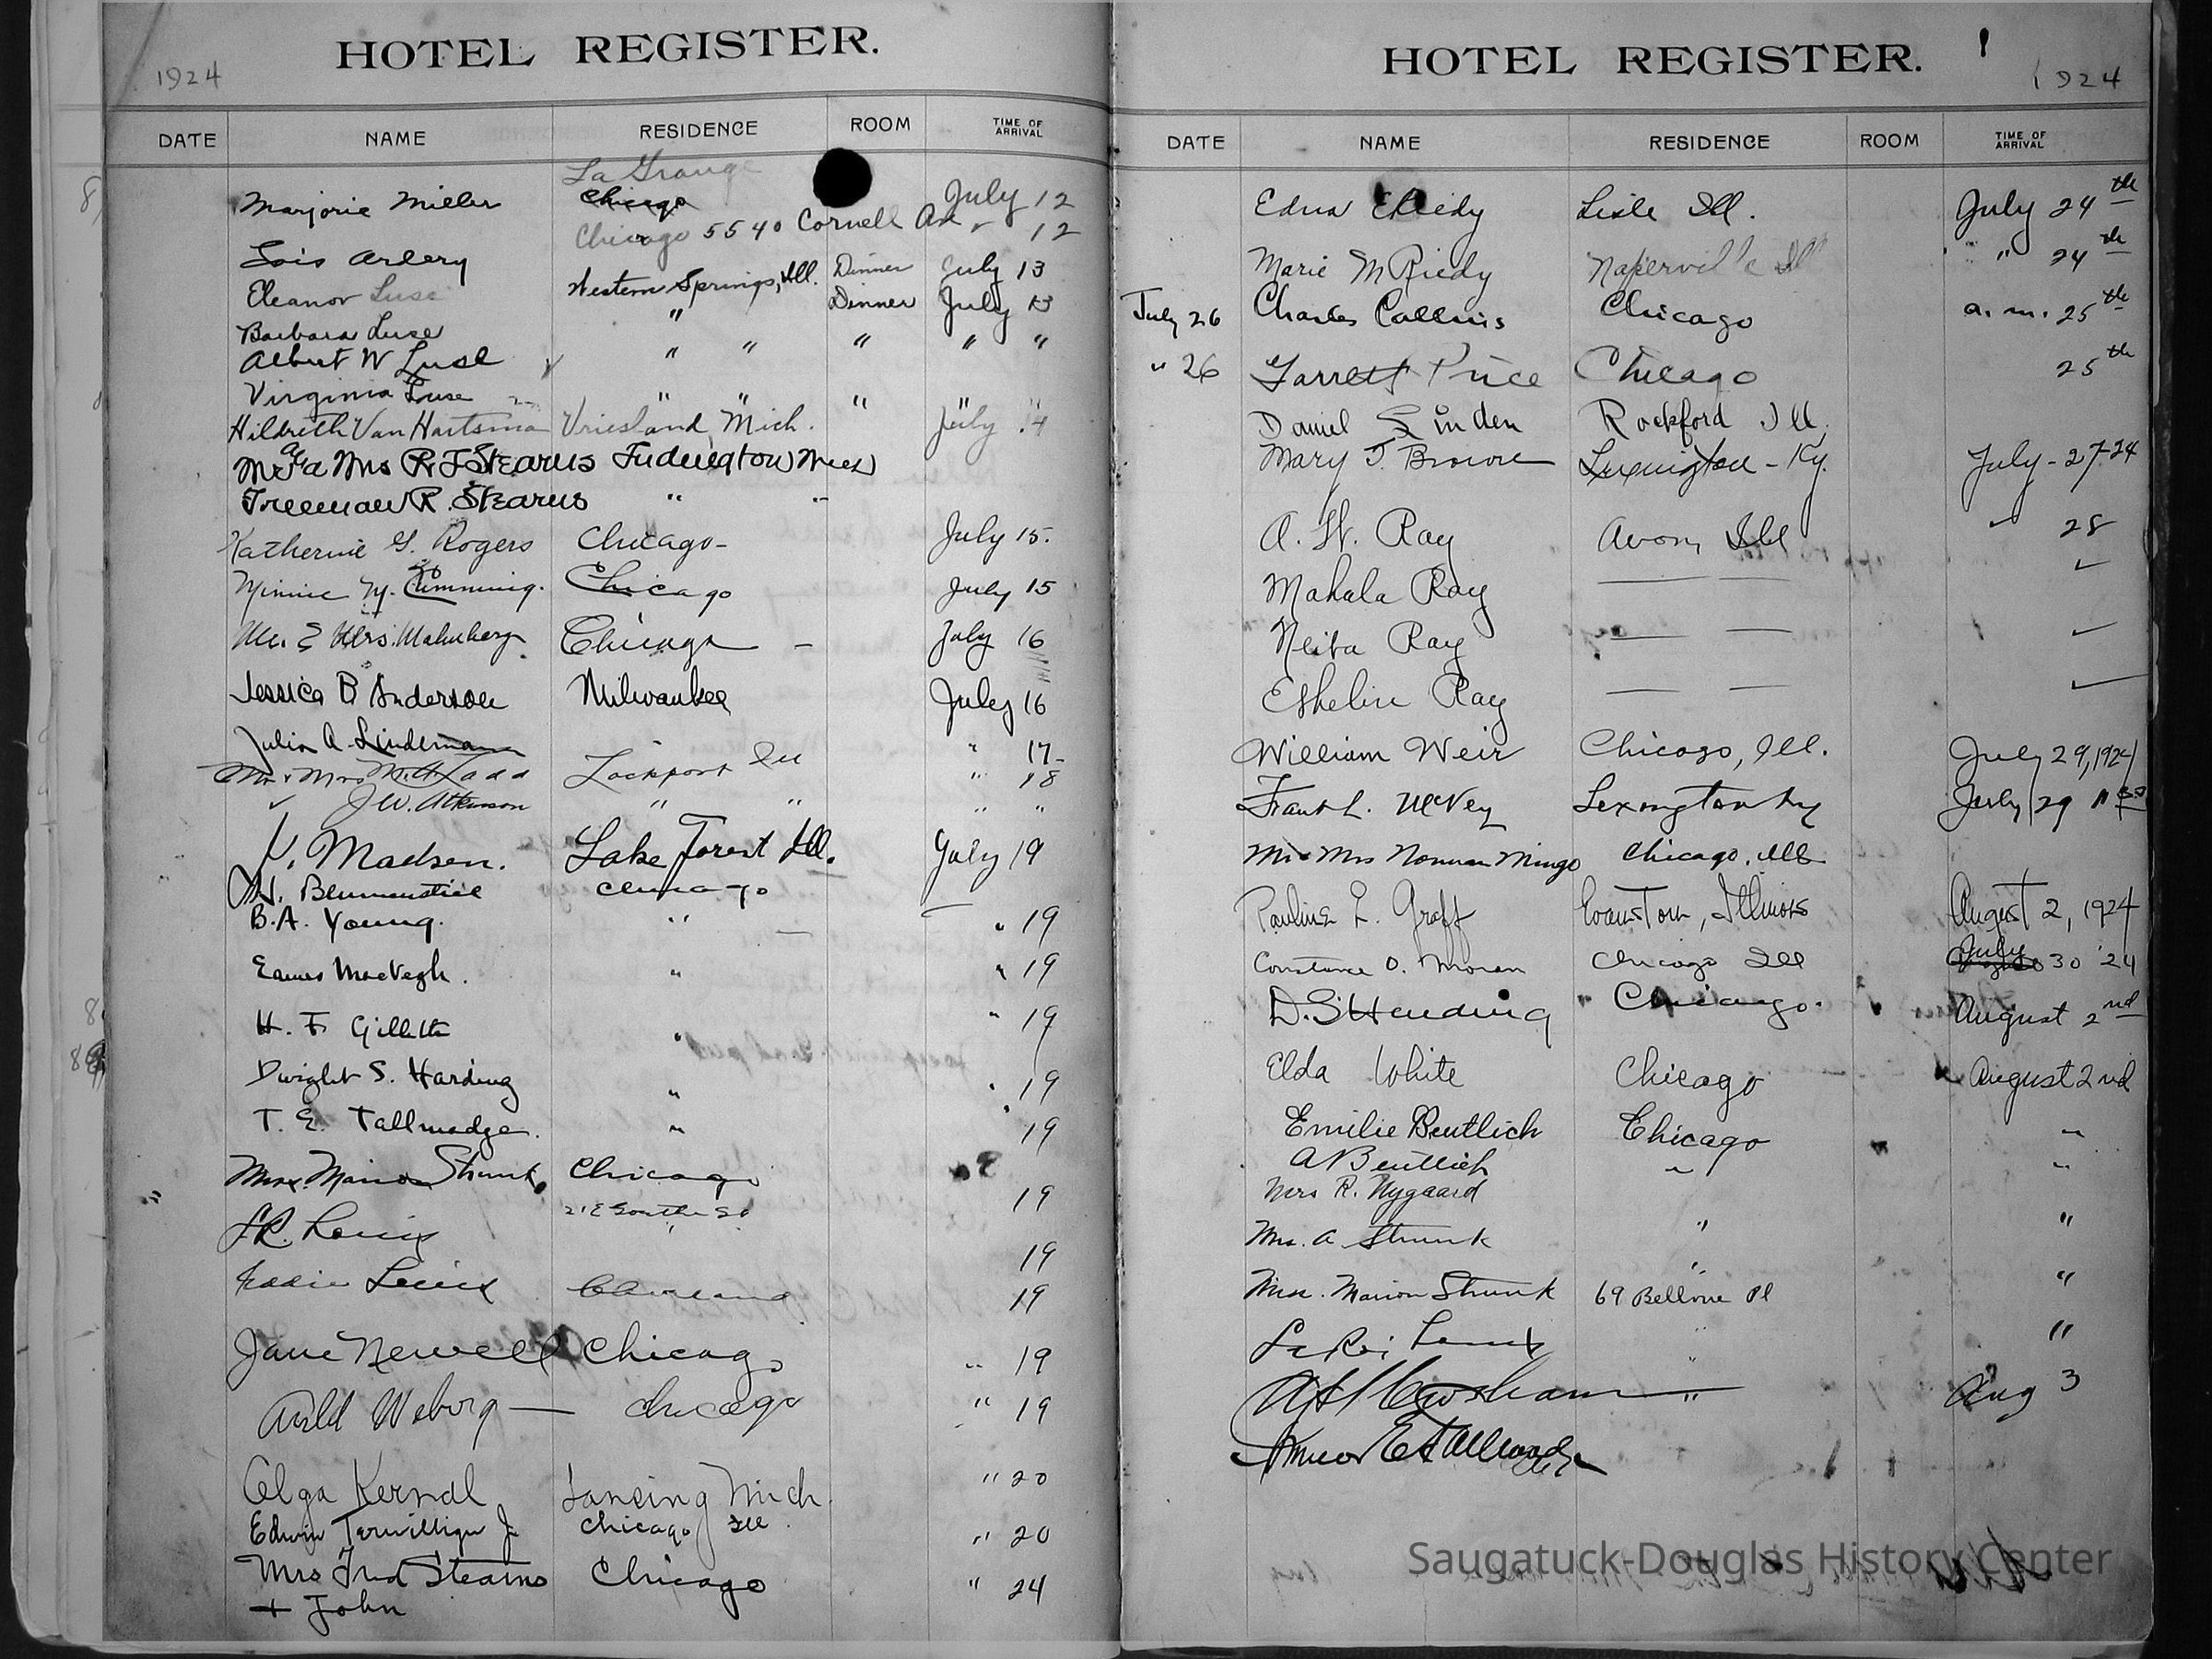 HOTEL REGISTER.
1924
DATE NAME RESIDENCE ROOM TIME OF ARRIVAL
La Grange
Marjorie Miller Chicago July 12
Chicago 5540 Cornell Av 12
Lois Arlery
Eleanor Luse Western Springs, Ill. Dinner July 13
Barbara Luse " Dinner July 13
Albert W Luse " " " " "
Virginia Luse " " " " "
Hildreth Van Hartsma Vriesland, Mich. July 14
Mr & Mrs R. J. Stearns Ludington Mich
Freeman R. Stearns " "
Katherine G. Rogers Chicago- July 15.
Minnie M. Cumming. Chicago July 15
Mr. & Mrs. Malmberg Chicago - July 16
Jessica B Anderson Milwaukee July 16
Julia A. Lindemann " 17-
Mr & Mrs Ladd Lockport Ill " 18
J W. Atkinson " " " "
V. Madsen. Lake Forest Ill. July 19
Blumenstiel Chicago
B.A. Young. " " 19
Eames MacVeagh. " " 19
H. F. Gillette " " 19
Dwight S. Harding " " 19
T. E. Tallmadge. " 19
Mrs. Marion Strunk, Chicago 19
21 E Goethe St
19
Lewis 19
Jane Newell Chicago " 19
Weborg — Chicago " 19
Olga Kerndl Lansing Mich. " 20
Edwin Terwilliger Jr. Chicago Ill. " 20
Mrs Fred Stearns Chicago " 24
+ John
HOTEL REGISTER.
1924
DATE NAME RESIDENCE ROOM TIME OF ARRIVAL
Edna Lisle Ill. July 24th
Marie M Riedy Naperville Ill " 24th
July 26 Charles Collins Chicago a.m. 25th
" 26 Garrett Price Chicago 25th
Daniel Linden Rockford Ill.
Mary T. Brown Lexington - Ky. July-27-24
A. W. Ray Avon, Ill 28
Mahala Ray
Neita Ray
Ray
William Weir Chicago, Ill. July 29, 1924
Frank L. McVey Lexington Ky July 29
Mr & Mrs Norman Mingo Chicago, Ill
Pauline L. Graff Evanston, Illinois August 2, 1924
July
Constance O. Moran Chicago Ill 30 '24
D. S. Harding Chicago. August 2nd
Elda White Chicago August 2nd
Emilie Beutlich Chicago "
A Beutlich " "
Mrs R. Nygaard
Mrs. A Strunk " "
Mrs. Marion Strunk 69 Bellvue Pl "
"
" Aug 3
Saugatuck-Douglas History Center